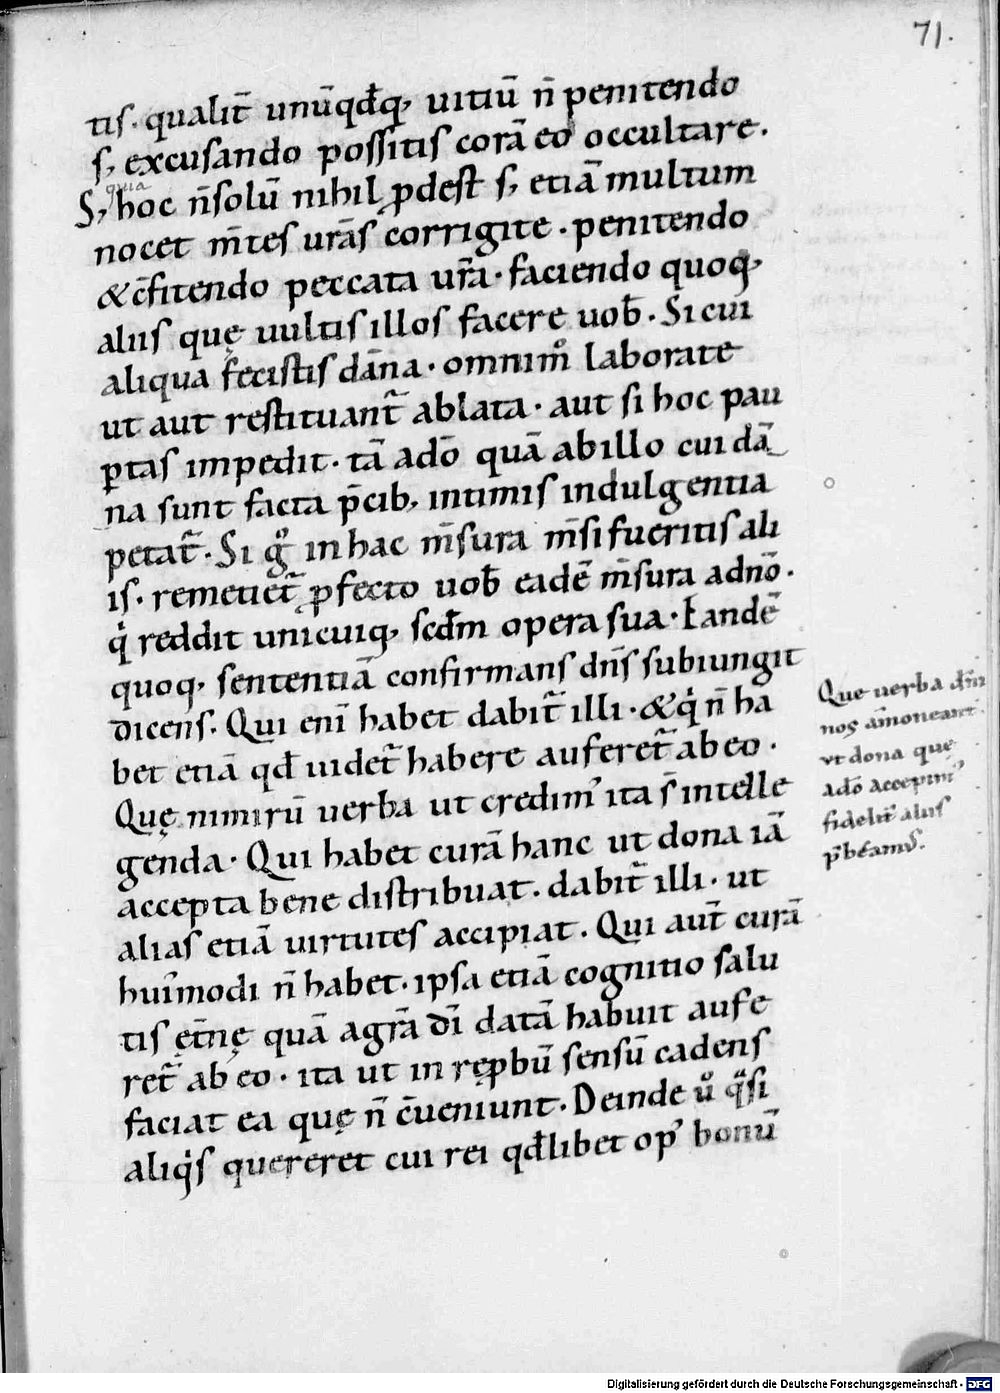 71.
tis. qualit̄ unūqđq; uitiū n̄ penitendo
s; excusando possitis corā eo occultare.
quia
S; hoc n̄ solū nihil ꝓdest s; etiā multum
nocet m̄tes ur̄as corrigite. penitendo
& c̄fitendo peccata ur̄a. faciendo quoq;
aliis quę uultis illos facere uob̄. Si cui
aliqua fecistis dāna. omnim̊ laborate
ut aut restituant᷑ ablata. aut si hoc pau
ꝑtas impedit. tā ad dō quā ab illo cui dā
na sunt facta p̄cib; intimis indulgentia
petat᷑. Si g̊ in hac m̄sura m̄si fueritis ali
is. remetiet᷑ ꝓfecto uob̄ eadē m̄sura a dnō.
qͥ reddit unicuiq; scđm opera sua. Eandē
quoq; sententiā confirmans dn̄s subiungit
dicens. Qui eni᷑ habet dabit᷑ illi. & qͥ n̄ ha
bet etiā qđ uidet᷑ habere auferet᷑ ab eo.
Quę nimirū uerba ut credim᷒ ita s̄ intelle
genda. Qui habet curā hanc ut dona iā
accepta bene distribuat. dabit᷑ illi. ut
alias etiā uirtutes accipiat. Qui aut̄ curā
hui᷒modi n̄ habet. ipsa etiā cognitio salu
tis ęt̄nę quā a gr̄a di᷑ datā habuit aufe
ret᷑ ab eo. ita ut in reꝓbū sensū cadens
faciat ea quę n̄ c̄ueniunt. Deinde ů qͣsi
aliqͥs quereret cui rei qđlibet op᷒ bonū
Que uerba dn̄i
nos am̄oneant.
ut dona quę
a dō accepim᷒
fidelit᷑ aliis
p̄beam᷒.
Digitalisierung gefördert durch die Deutsche Forschungsgemeinschaft - DFG